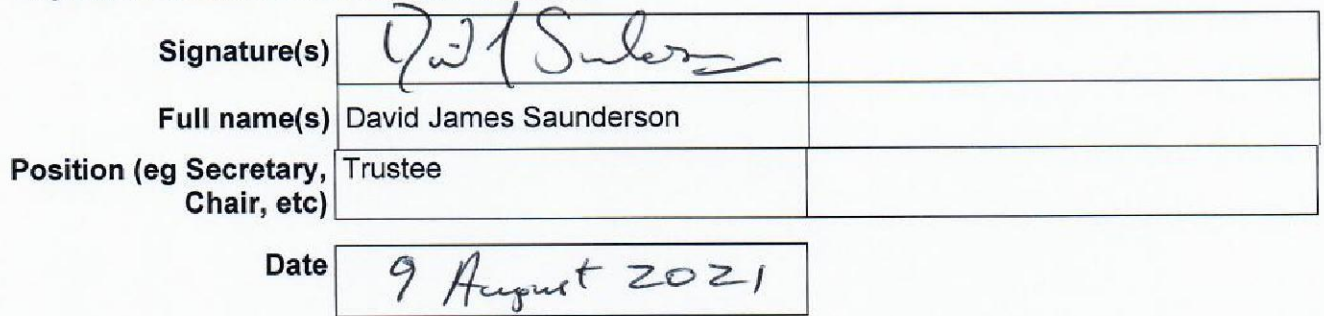 Signature(s)
Full name(s) David James Saunderson
Position (eg Secretary, Trustee
Chair, etc)
Date 9 August 2021